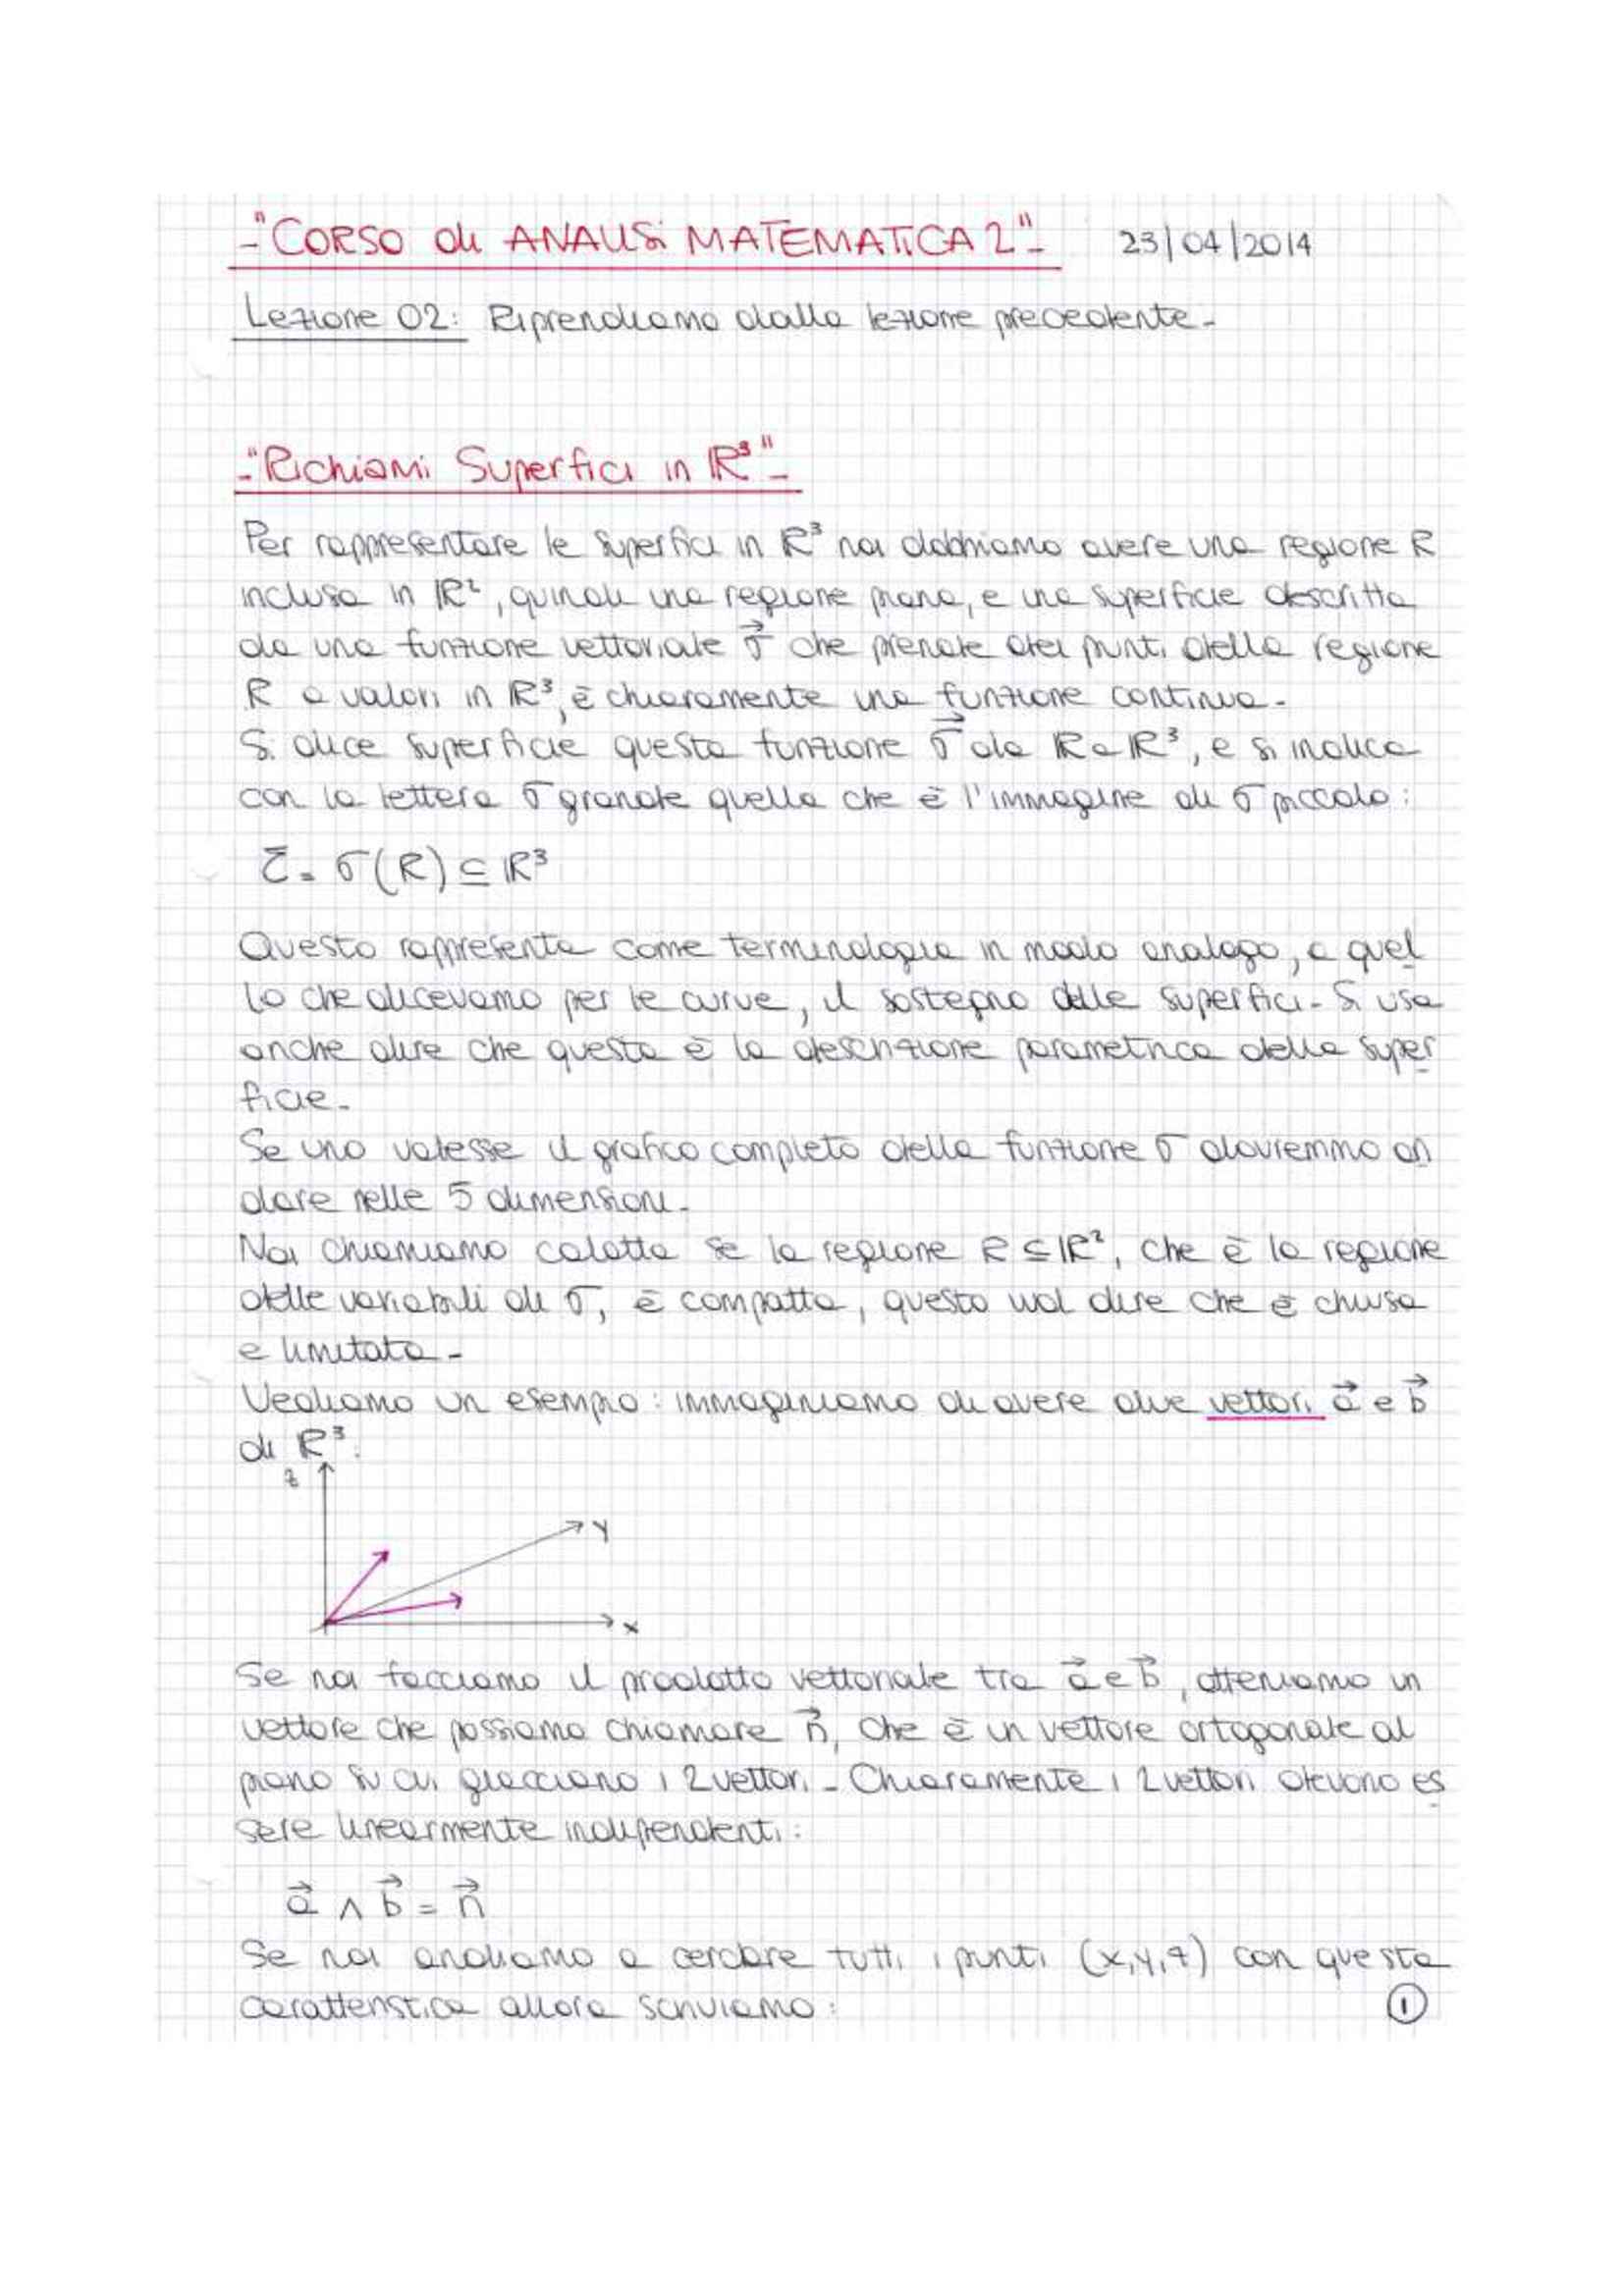 -"CORSO di ANALISI MATEMATICA 2"- 23/04/2014
Lezione 02: Riprendiamo dalla lezione precedente-
-"Richiami Superfici in ℝ³"-
Per rappresentare le superfici in ℝ³ noi dobbiamo avere una regione R
inclusa in ℝ², quindi una regione piana, e una superficie descritta
da una funzione vettoriale σ⃗ che prende dei punti della regione
R a valori in ℝ³, è chiaramente una funzione continua-
Si dice superficie questa funzione σ⃗ da R a ℝ³, e si indica
con la lettera σ grande quella che è l'immagine di σ piccolo:
Σ = σ(R) ⊆ ℝ³
Questo rappresenta come terminologia in modo analogo, a quel
lo che dicevamo per le curve, il sostegno delle superfici- Si usa
anche dire che questa è la descrizione parametrica della super
ficie-
Se uno volesse il grafico completo della funzione σ dovremmo an
dare nelle 5 dimensioni-
Noi chiamiamo calotta se la regione R ⊆ ℝ², che è la regione
delle variabili di σ, è compatta, questo vuol dire che è chiusa
e limitata-
Vediamo un esempio: immaginiamo di avere due vettori a⃗ e b⃗
di ℝ³:
z
y
x
Se noi facciamo il prodotto vettoriale tra a⃗ e b⃗, otteniamo un
vettore che possiamo chiamare n⃗, che è un vettore ortogonale al
piano su cui giacciono i 2 vettori- Chiaramente i 2 vettori devono es
sere linearmente indipendenti:
a⃗ ∧ b⃗ = n⃗
Se noi andiamo a cercare tutti i punti (x,y,z) con questa
caratteristica allora scriviamo:
1